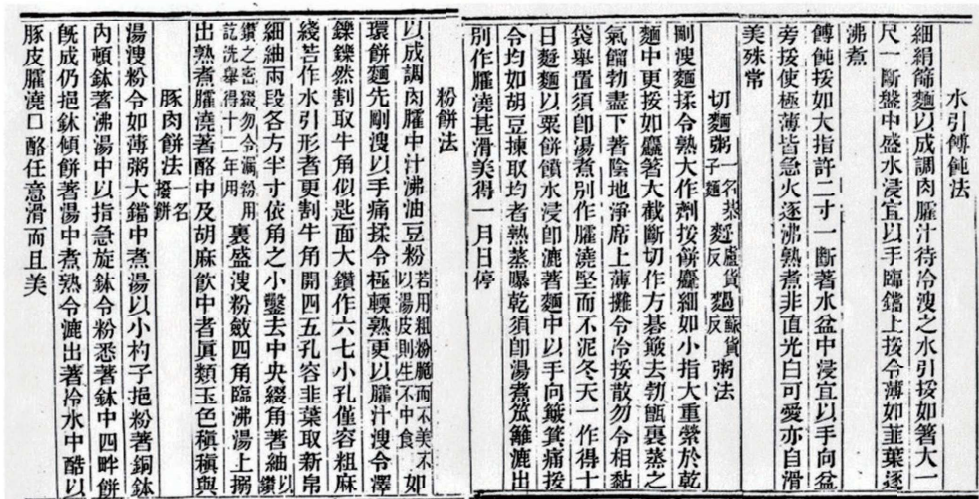 水引傅飩法
細絹篩麵以成調肉臛汁待冷溲之水引挼如箸大一
尺一斷盤中盛水浸宜以手臨鐺上挼令薄如韭葉逐
沸煮
傅飩挼如大指許二寸一斷著水盆中浸宜以手向盆
旁挼使極薄皆急火逐沸熟煮非直光白可愛亦自滑
美殊常
切麵粥一名棊子麵盧貨反蘇貨反粥法
剛溲麵揉令熟大作劑挼餅麤細如小指大重縈於乾
麵中更挼如麤箸大截斷切作方棊簸去勃甑裏蒸之
氣餾勃盡下著陰地淨席上薄攤令冷挼散勿令相黏
袋舉置須卽湯煮別作臛澆堅而不泥冬天一作得十
日麵以粟餅饙水浸卽漉著麵中以手向簸箕痛挼
令均如胡豆揀取均者熟蒸曝乾須卽湯煮笊籬漉出
別作臛澆甚滑美得一月日停
粉餅法
以成調肉臛中汁沸油豆粉若用粗粉脆而不美不以湯皮則生不中食如
環餅麵先剛溲以手痛揉令極輭熟更以臛汁溲令澤
鑠鑠然割取牛角似匙面大鑽作六七小孔僅容粗麻
綫若作水引形者更割牛角開四五孔容韭葉取新帛
細紬兩段各方半寸依角之小鑿去中央綴角著紬以鑽
鑽之密綴勿令漏粉用記洗舉得十二年用裏盛溲粉斂四角臨沸湯上搦
出熟煮臛澆著酪中及胡麻飮中者眞類玉色稹稹與
豚肉餅法一名撥餅
湯溲粉令如薄粥大鐺中煮湯以小杓子挹粉著銅鉢
內頓鉢著沸湯中以指急旋鉢令粉悉著鉢中四畔餅
旣成仍挹鉢傾餅著湯中煮熟令漉出著冷水中酷以
豚皮臛澆口酪任意滑而且美